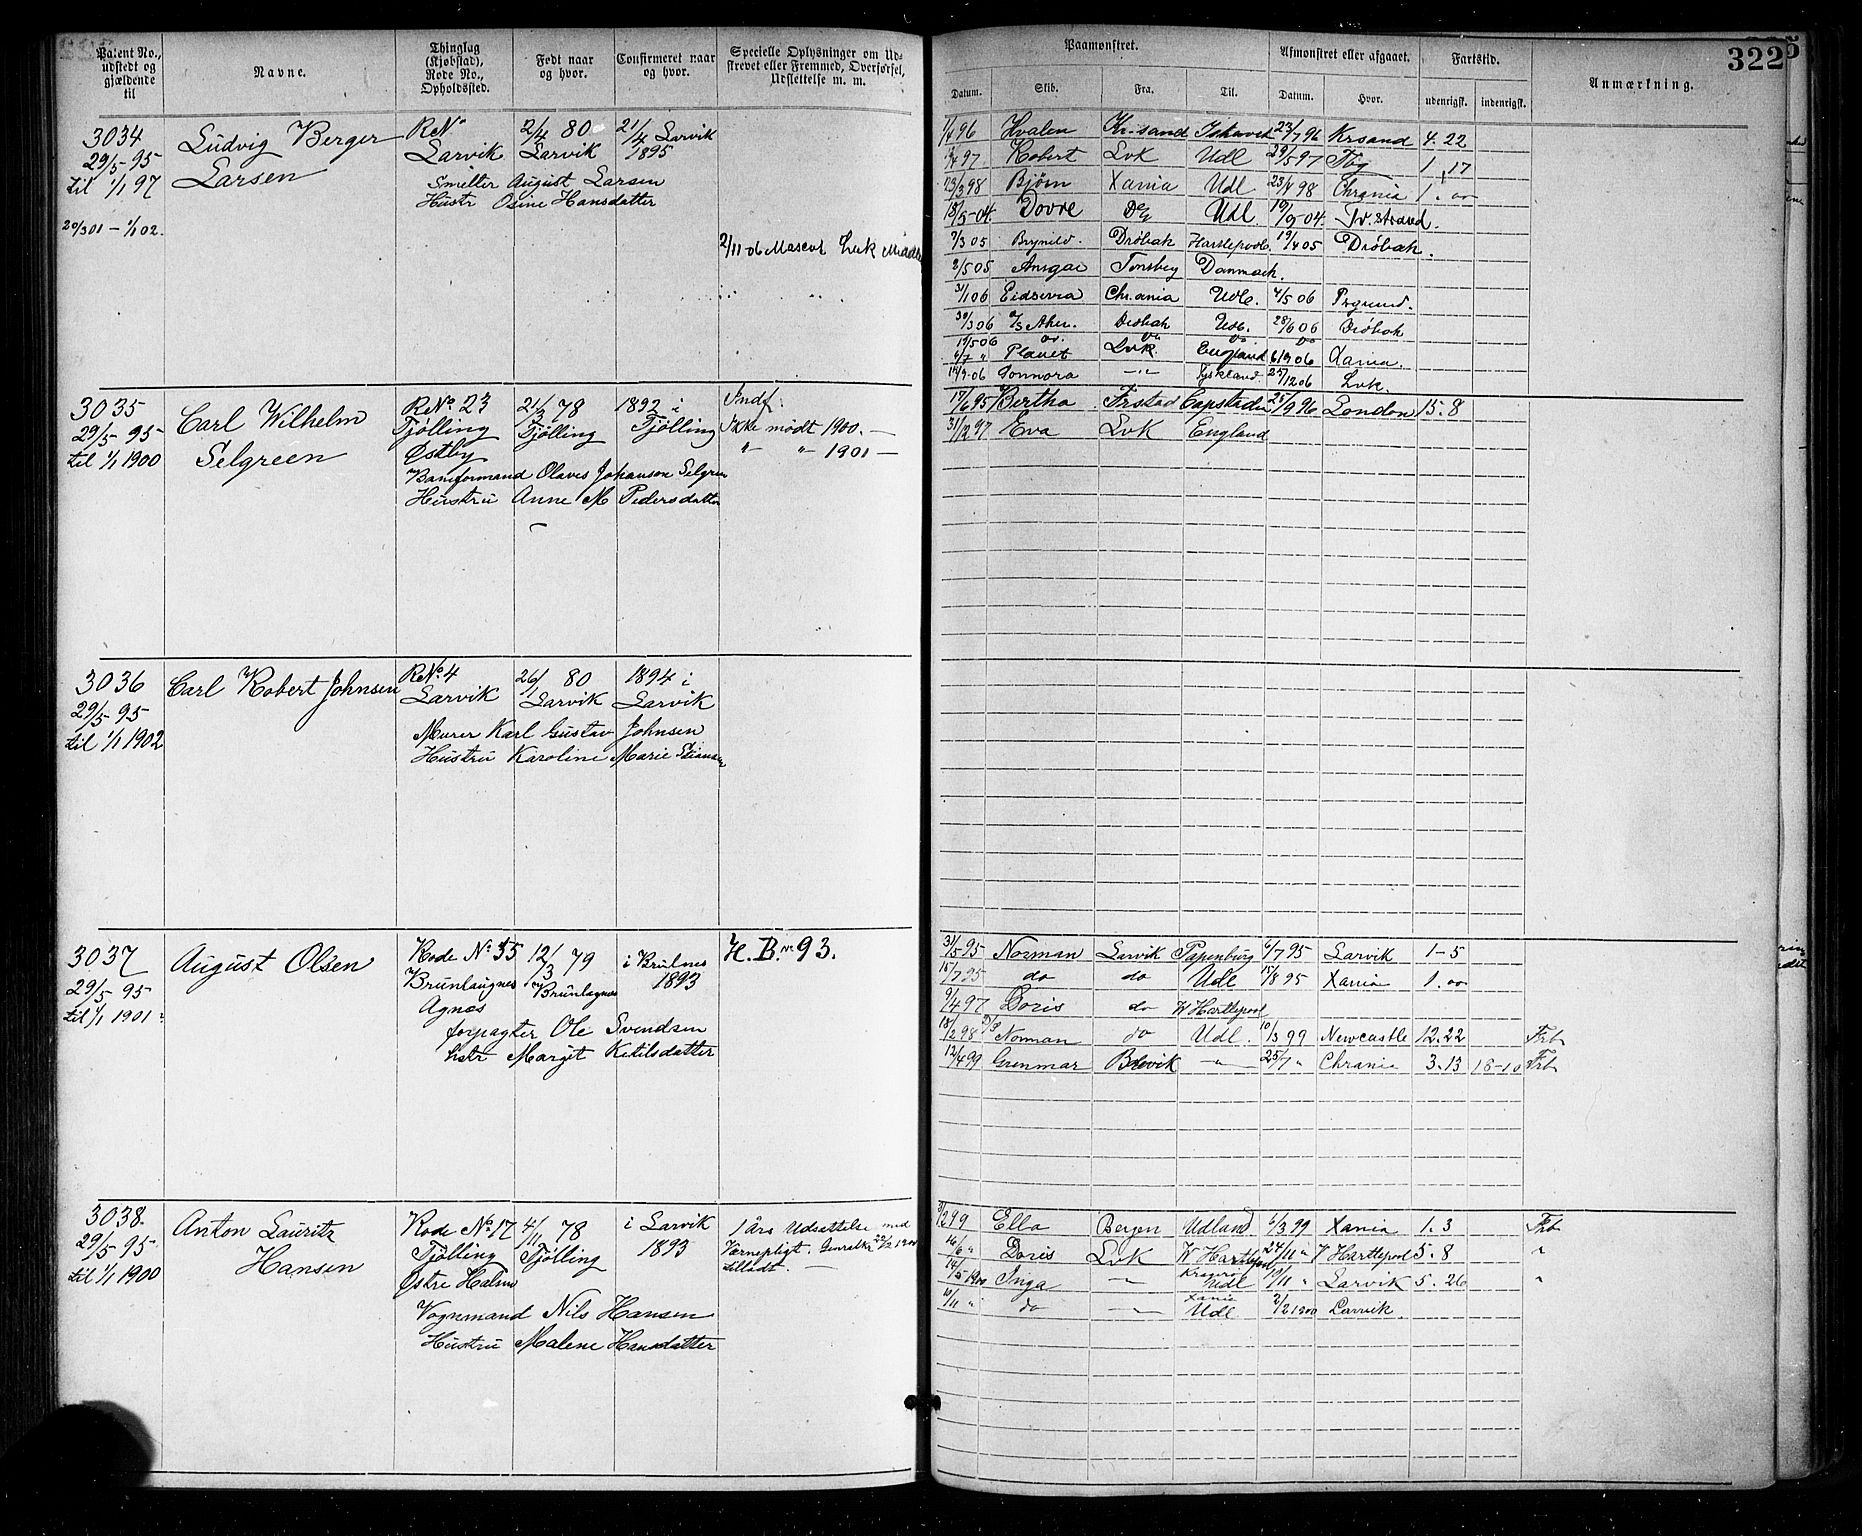 Patent No., udstedt og gjældende til
Navne.
Thinglag (Kjøbstad), Rode No., Opholdssted.
Født naar og hvor.
Confirmeret naar og hvor.
Specielle Oplysninger om Udskrevet eller Fremmed, Overførsel, Udslettelse m. m.
3034
29/5-95
til 1/1 97
20/3 01 - 1/1 02.
Ludvig Berger
Larsen
R No
Larvik
2/4 80
Larvik
21/4 Larvik
1895
Smelter August Larsen
Hustr Osine Hansdatter
2/11-06 Mascot Lvk
3035
29/5-95-
til 1/1 1900
Carl Wilhelm
Selgreen
R No 23
Tjølling
Østby
21/3 78
Tjølling
1892 i
Tjølling
Indf.
Ikke mødt 1900. —
" " 1901 —
Baneformand Olaves Johanson Selgren
Hustru Anne M Pedersdatter
3036
29/5-95
til 1/1 1902
Carl Robert Johnsen
R No 4
Larvik
26/1 80
Larvik
1894 i
Larvik
Murer Karl Gustav Johnsen
Hustru Karoline Marie
3037
29/5-95-
til 1/1 1901
August Olsen
Rode No 35
Brunlaugnes
Agnes
12/3 79
Brunlagnes
i Brulnes
1893
H. B. No 93.
forpagter Ole Svendsen
hstr Margit Ketilsdatter
3038.
29/5-95-
til 1/1 1900
Anton Lauritz
Hansen
Rode No 17
Tjølling
Østre Halmø
4/11 78
Tjølling
i Larvik
1893
1 Års Udsættelse med
Værnepligt.
tilladt. —
Vognmand Nils Hansen
Hustru Malene Hansdatter
322
Paamønstret.
Afmønstret eller afgaaet.
Fartstid.
Anmærkning.
Datum.
Skib.
Fra.
Til.
Datum.
Hvor.
udenrigsk.
indenrigsk.
96 Hvalen Kr.sand 23/7 96 Krsand 4. 22
97 Robert Lvk Udl 29/5 97 Tbg 1. 17
23/3 98 Bjørn Xania Udl 98 Chrania 1. 00
18/5-04 Dovre Udl. 19/9 04. Tv.strand.
7/3 05 Brynild. Drøbak Hartlepool. 19/4 05 Drøbak.
2/5 05 Ansgar Tønsberg Danmark.
31/1 06 Eidsivra Chr.ania Udl. 4/5 06 Prgrund.
30/3 06 Aker. Drøbak Udl. 28/6 06 Drøbak
19/5 06 do. do do do
6/7 " Planet Lvk. England 6/9 06 Xania.
14/9-06 Sonnora —"— Tyskland 27/12 06 Lvk.
17/6 95 Bertha Frstad Capstaden 25/9 96 London 15. 8
31/12 97 Eva Lvk England
31/5 95 Norman Larvik Papenburg 6/7 95 Larvik 1-5
15/7 95 do do Udl 15/8 95 Xania 1. 00
9/4 97 Doris do W Hartlepool
18/2 98 D/S Norman do Udl. 10/3 99 Newcastle 12. 22 Frb
12/4 99 Grenmar Brevik —"— 25/7 " Chrania 3. 13 18-10 Frb
2/2 99 Ella Bergen Udland 6/3 99 Xania 1. 3 Frb
16/6 " Doris Lvk W Hartlepool 24/11 " W Hartlepool 5. 8 "
14/5-1900 Inga —"— Kragerø Udl 10/11 " Larvik 5. 26 "
10/11 " do —"— Xania Udl 2/2 1900 Larvik.